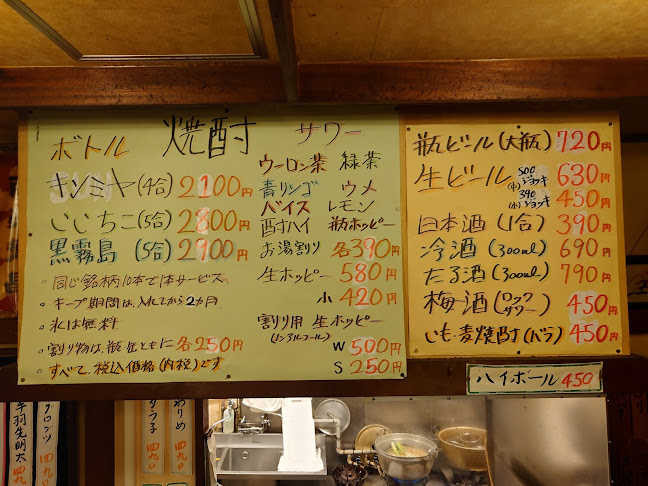 焼酎
ボトル
キンミヤ(4合) 2100円
いいちこ(5合) 2800円
黒霧島(5合) 2900円
◦ 同じ銘柄10本で1本サービス
◦ キープ期間は、入れてから2カ月
◦ 氷は無料
◦ 割り物は、瓶 生ともに 各250円
◦ すべて、税込価格(内税)です
サワー
ウーロン茶 緑茶
青リンゴ ウメ
バイス レモン
酎ハイ 瓶ホッピー
お湯割り 各390円
生ホッピー 580円
小 420円
割り用 生ホッピー
(ノンアルコール)
W 500円
S 250円
瓶ビール(大瓶) 720円
生ビール 500 (中)ジョッキ 630円
390 (小)ジョッキ 450円
日本酒(1合) 390円
冷酒(300ml) 690円
たる酒(300ml) 790円
梅酒(ロック サワー) 450円
いも・麦焼酎(バラ) 450円
ハイボール 450
手羽先明太